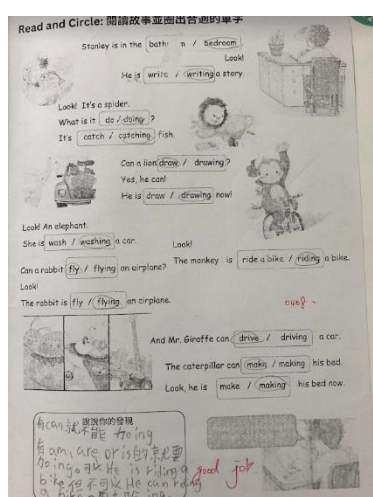 Read and Circle: 閱讀故事並圈出合適的單字
Stanley is in the / bedroom
Look!
He is write / writing a story.
Look! It's a spider.
What is it do / doing ?
It's catch / catching fish.
Can a lion draw / drawing ?
Yes, he can!
He is draw / drawing now!
Look! An elephant.
She is wash / washing a car.
Look!
The monkey is ride a bike / riding a bike.
Can a rabbit fly / flying an airplane?
Look!
The rabbit is fly / flying an airplane.
And Mr. Giraffe can drive / driving a car.
The caterpillar can make / making his bed.
Look, he is make / making his bed now.
說說你的發現
有can就不能加ing
有am, are or is的就要
加ing。可以 He is riding a
bike 但不可以 He can riding
a bike
good job